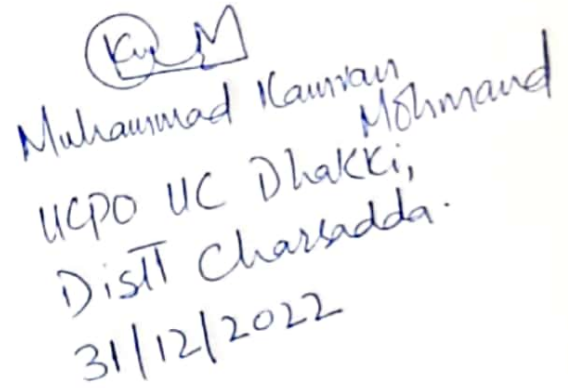 Muhammad Kamran
Mohmand
UCPO UC Dhakki,
Distt Charsadda.
31/12/2022